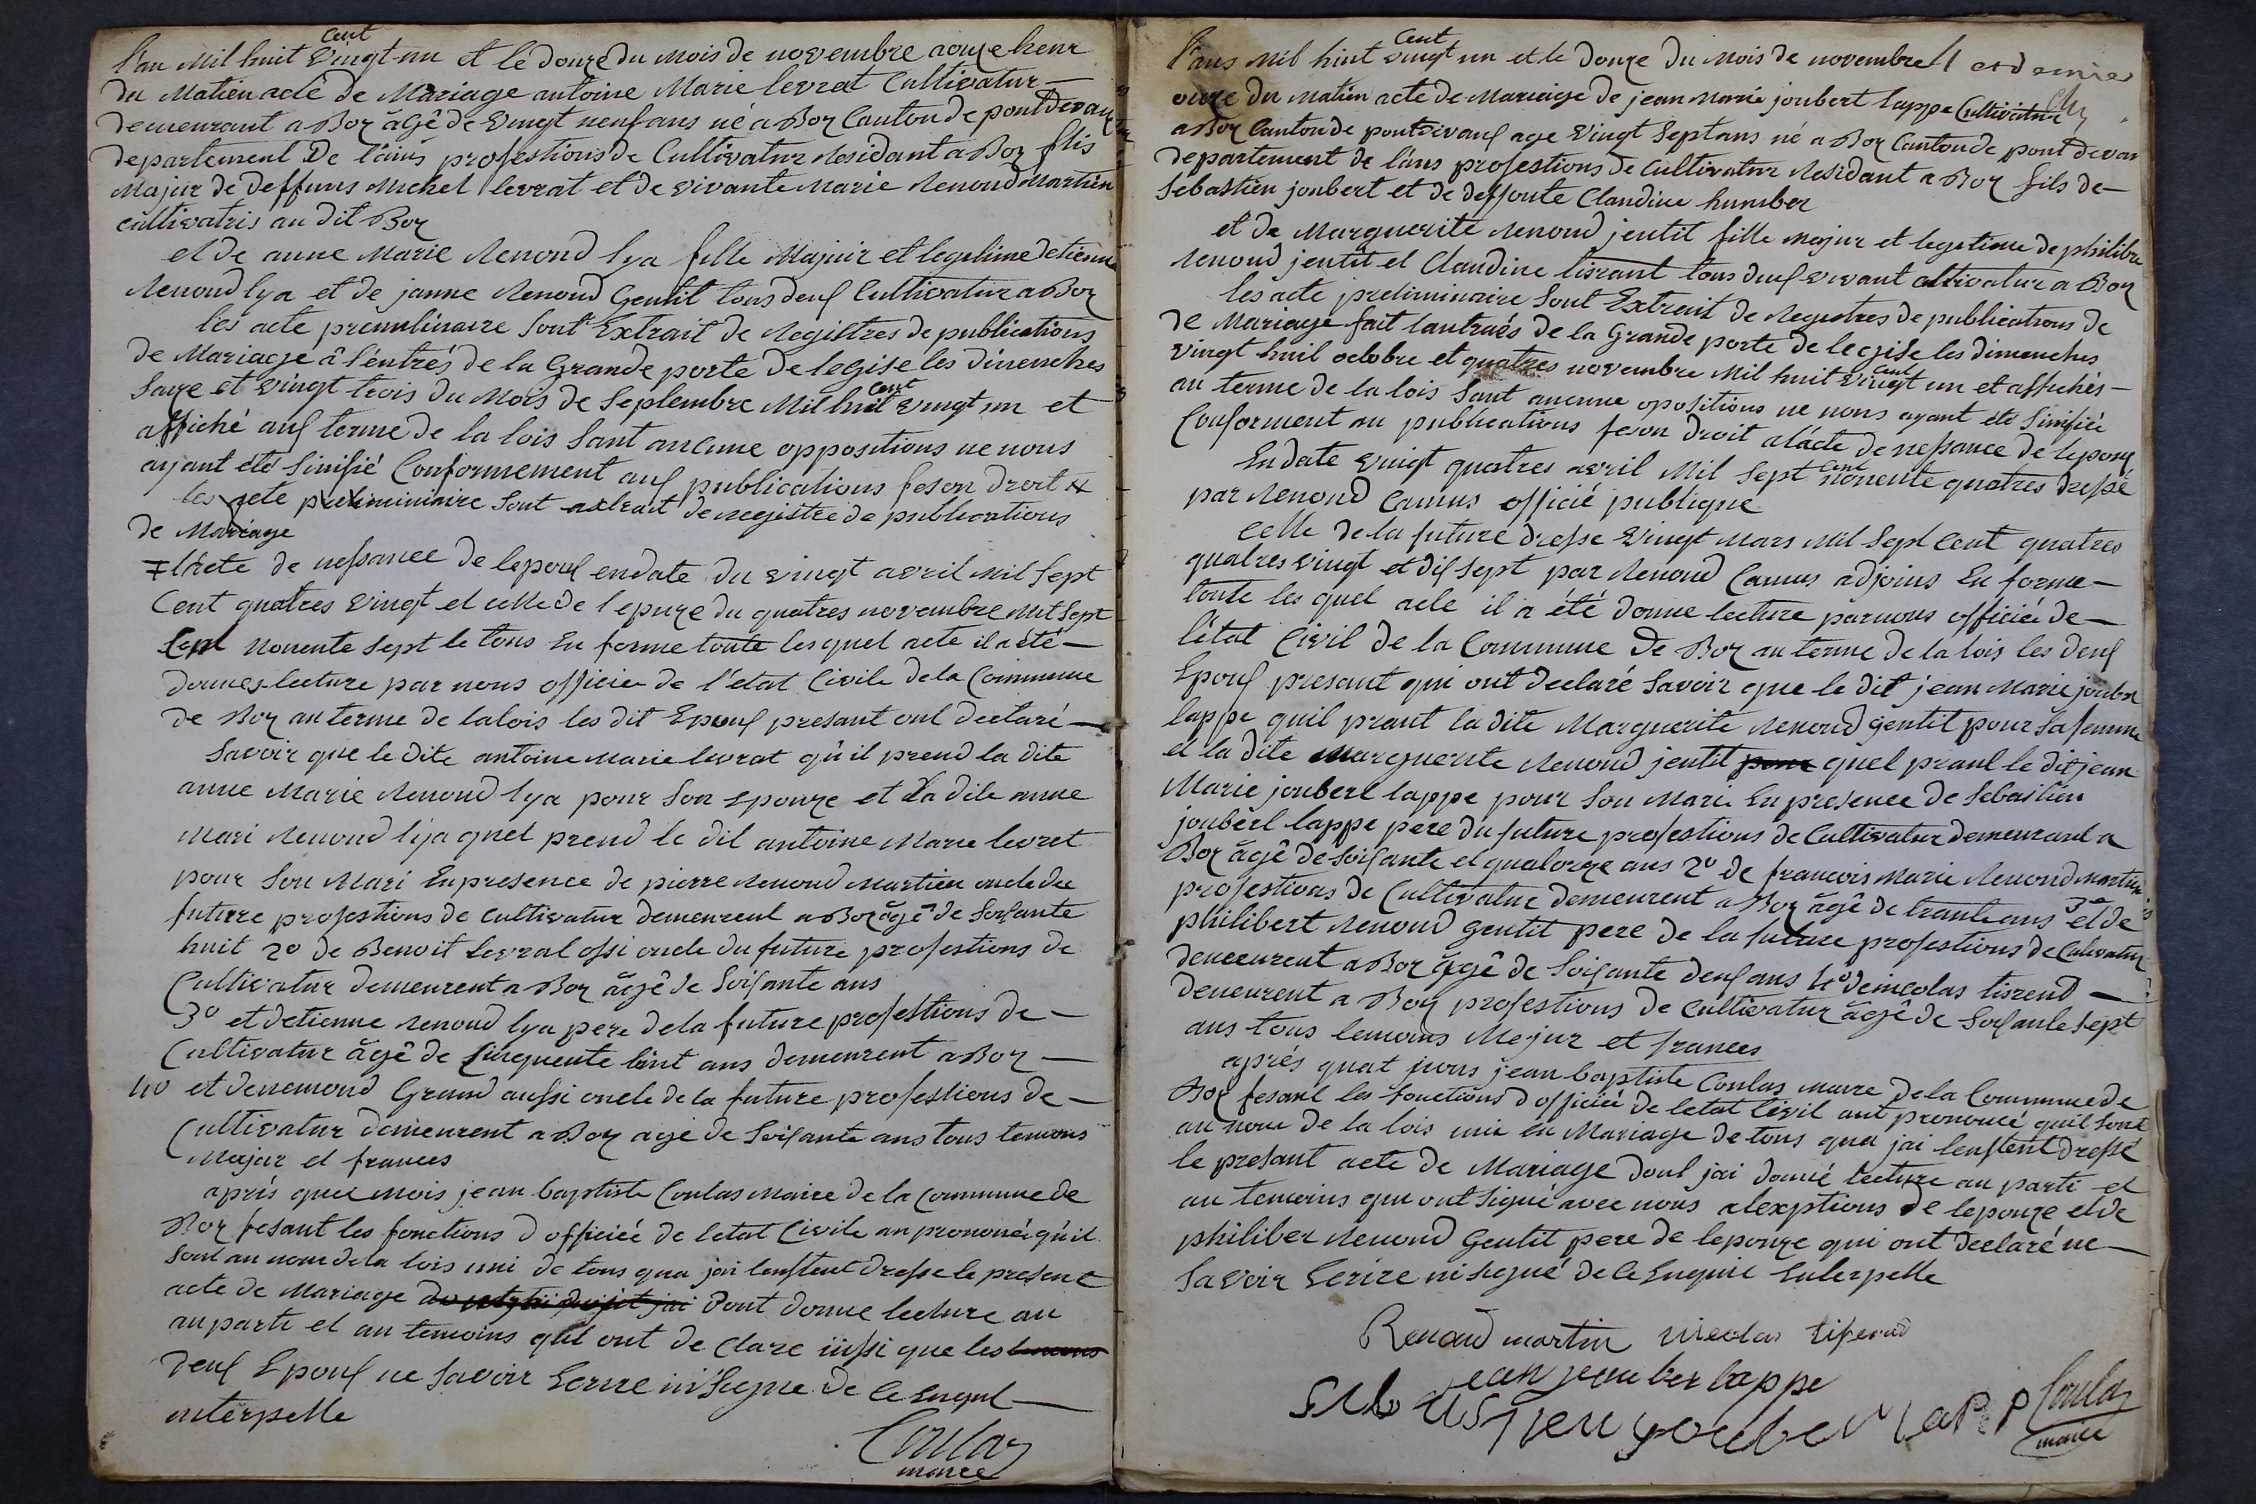 Cent
l'an Mil huit vingt-un et le douze du Mois de novembre aouze heur
du Matien acte de Mariage antoine Marie levrat Cultivatur —
demeurant a Boz âgê de vingt neuf ans né a Boz Canton de pont devaux
departement De l'ains profestions de Cultivatur Residant a Boz flis
Majur de deffuns Michel levrat et de vivante Marie Renoud Martien
cultivatris au dit Boz
et de anne Marie Renoud lya fille Majuir et legitime detienne
Renoud lya et de janne Renoud Gentit tous deuf Cultivatur a Boz
les acte premilinaire sont Extrait de Registres de publications
de Mariagje â l'éntrés de la Grande porte De legise les dimenches
saize et vingt trois du Mois de Septembre Mil huit Cent vingt un et
affiché auf terme de la lois sant aucune oppositions ne nous
ayant été sinifié Conformement auf publications feson droit #
les acte preliminiaire sont extrait de registre de publications
de Mariage
# l'acte de nessance de lepouf endate du vingt avril Mil sept
Cent quatres vingt et celle de l'epuze du quatres novembre Mil sept
Cent nonente sept le tous En forme toute lesquel acte il a été —
donnes lecture par nous officiee de l'état Civile dela Commune
de Boz au terme de lalois les dit Epouf presant ont declaré —
savoir que le dite antoine Marie levrat qu'il prend la dite
anne Marie Renoud lya pour son Epouze et la dite anne
Mari Renoud lya quel prend le dit antoine Marie levret
pour son Mari En presence de pierre Renoud Martien oncle du
future profestions de cultivatur demeurent a Boz âgê de soifante
huit 2º de Benoit levrat ossi oncle du future profestions de
Cultivatur demeurent a Boz âgê de soifante ans
3º et detienne Renoud lya pere dela future profestions de —
Cultivatur âgê de Cinquente sint ans demeurent a Boz —
4º et deremond Grand aussi oncle de la future profestions de —
Cultivatur demeurent a Boz age de soifante ans tous temoins
Majur et francès
après quei mois jean baptiste Coulas Maire de la Commune de
Boz fesant les fonctions d officiée de letat Civile an prononcé qu'il
sont au nom dela lois uni de tous qua jai lenstent dresse le present
acte de Mariage Dont donne lecture au
auparti et au temoins quil ont de clare iinsi que les temoins
deuf Epouf ne savoir Ecrire ni signe de Ce Enquil —
interpelle
Coulas
maire
Cent
l'ans Mil huit vingt un et le Douze Du Mois de novembre et demies
ouze du Matien acte de Mariage de jean Marie joubert lappe Cultivatur
a Boz Canton de pontdevauf age vingt septans né a Boz Canton de pont devau
departement de l'ains profestions de Cultivatur Residant a Boz fils de —
Sebastien joubert et de deffonte Claudine humber
et de Marguerite Renoud jentit fille Majur et legetime de philibr
Renoud jentit et Claudine tisrant tous deuf vivant cultivatur a Boz
les acte preliminaire sont Extrait de Registres de publications de
de Mariage fait lantrués de la Grande porte de legise les dimenches
vingt huit octobre et quatres novembre Mil huit Cent vingt un et affichés —
au terme de la lois sant aucune opositions ne nous ayant été sinifiée
Conforment au publications feson droit a lácte de nessance de lepouf
En date vingt quatres avril Mil sept Cent nonente quatres dressé
par Renoud Camus officié publique
Celle de la future dresse vingt Mars Mil sept Cent quatres
quatres vingt et dif sept par Renoud Camus adjoins En forme —
toute les quel acte il a été donne lecture parnous officiée de —
létat Civil de la Commune De Boz au terme de la lois les deuf
Epouf presant qui ont declaré savoir que le dit jean Marie joubr
lappe quil prant la dite Marguerite Renoud gentit pour sa femme
et la dite Marguerite Renoud jentit pour quel prant le dit jean
Marie joubert lappe pour son Mari En presence de Sebastien
joubert lappe pere du future profestions de Cultivatur demeurant a
Boz âgê de soifante et quatorze ans 2º de francois Marie Renoud martin
profestions de Cultivatur demeurent a Boz âgê de trante ans 3º et de
philibert Renoud gentit pere de la future profestions de Cultivatur
demeurent a Boz âgê de soifante deuf ans 4º de nicolas tisrend —
demeurent a Boz profestions de cultivatur âgê de soifante sept
ans tous temoins Mejur et francés
après quat nous jean baptiste Coulas maire de la Commune de
Boz fesant les fonctions d officiée de letat Civil ant prononcé quil sont
au nom de la lois unie En Mariage de tous qua jai lenstent dressé
le presant acte de Mariage dont jai donné lecture au parti et
au temoins qui ont signé avec nous alexptions de lepouze et de
philiber Renoud Gentit pere de lepouze qui ont declaré ne —
savoir Ecrire ni signé de Ce Enquil Enterpelle
Renaud martin nicolas tiserand
jean jouber lappe
Sebastien youber lapp
Coulas
maire